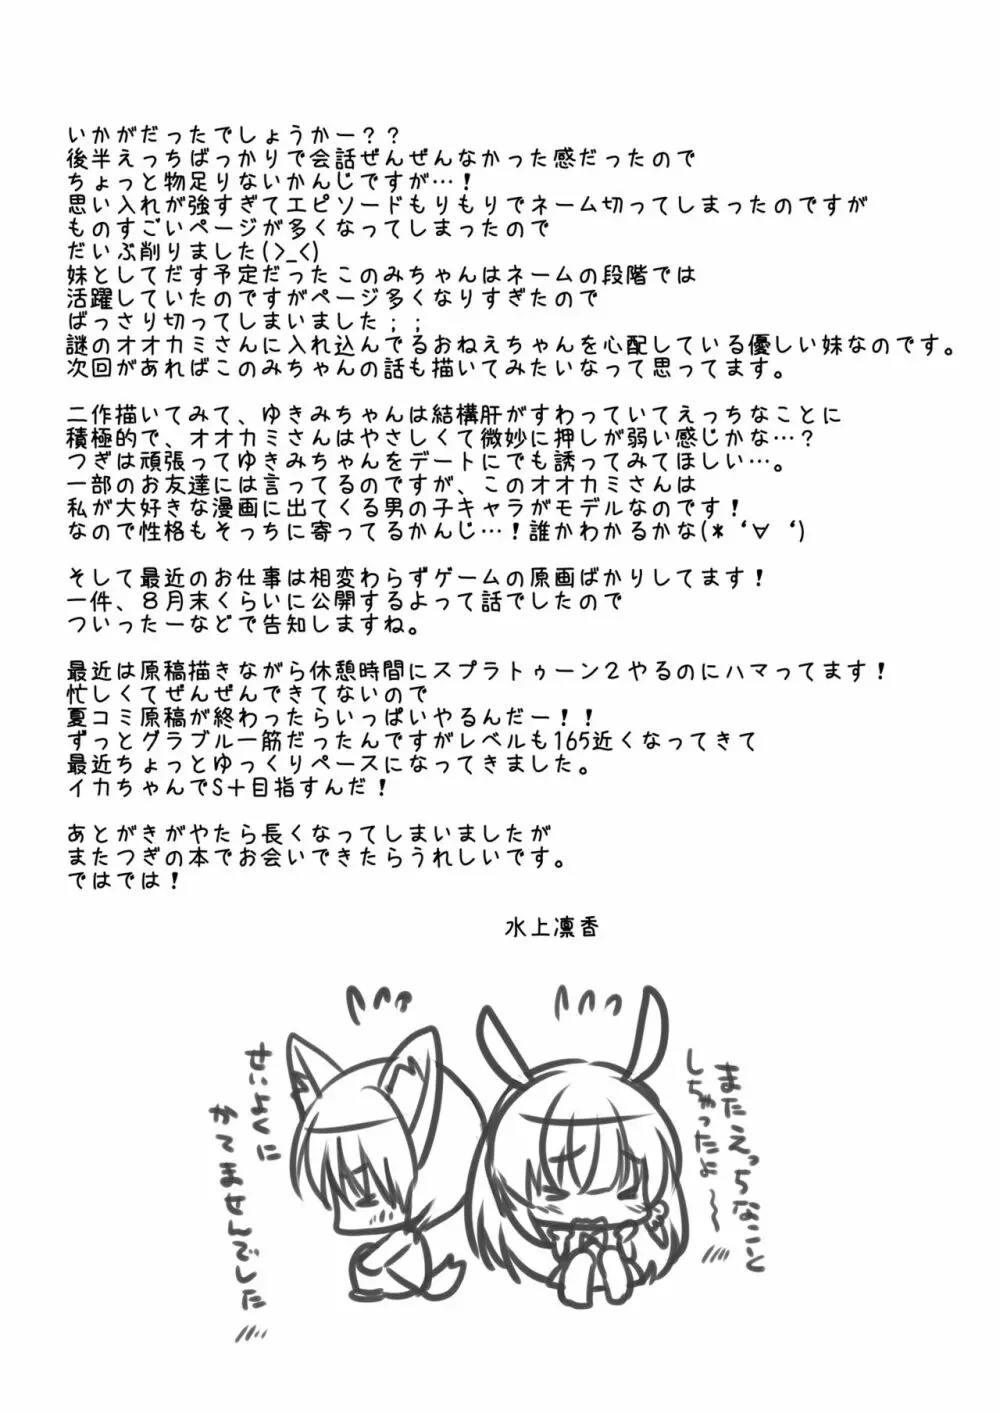 いかがだったでしょうかー？？
後半えっちばっかりで会話ぜんぜんなかった感だったので
ちょっと物足りないかんじですが…！
思い入れが強すぎてエピソードもりもりでネーム切ってしまったのですが
ものすごいページが多くなってしまったので
だいぶ削りました(>_<)
妹としてだす予定だったこのみちゃんはネームの段階では
活躍していたのですがページ多くなりすぎたので
ばっさり切ってしまいました；；
謎のオオカミさんに入れ込んでるおねえちゃんを心配している優しい妹なのです。
次回があればこのみちゃんの話も描いてみたいなって思ってます。
二作描いてみて、ゆきみちゃんは結構肝がすわっていてえっちなことに
積極的で、オオカミさんはやさしくて微妙に押しが弱い感じかな…？
つぎは頑張ってゆきみちゃんをデートにでも誘ってみてほしい…。
一部のお友達には言ってるのですが、このオオカミさんは
私が大好きな漫画に出てくる男の子キャラがモデルなのです！
なので性格もそっちに寄ってるかんじ…！誰かわかるかな(*‘∀‘)
そして最近のお仕事は相変わらずゲームの原画ばかりしてます！
一件、８月末くらいに公開するよって話でしたので
ついったーなどで告知しますね。
最近は原稿描きながら休憩時間にスプラトゥーン２やるのにハマってます！
忙しくてぜんぜんできてないので
夏コミ原稿が終わったらいっぱいやるんだー！！
ずっとグラブル一筋だったんですがレベルも165近くなってきて
最近ちょっとゆっくりペースになってきました。
イカちゃんでS＋目指すんだ！
あとがきがやたら長くなってしまいましたが
またつぎの本でお会いできたらうれしいです。
ではでは！
水上凛香
またえっちなこと
しちゃったよ〜〜
せいよくに
かてませんでした